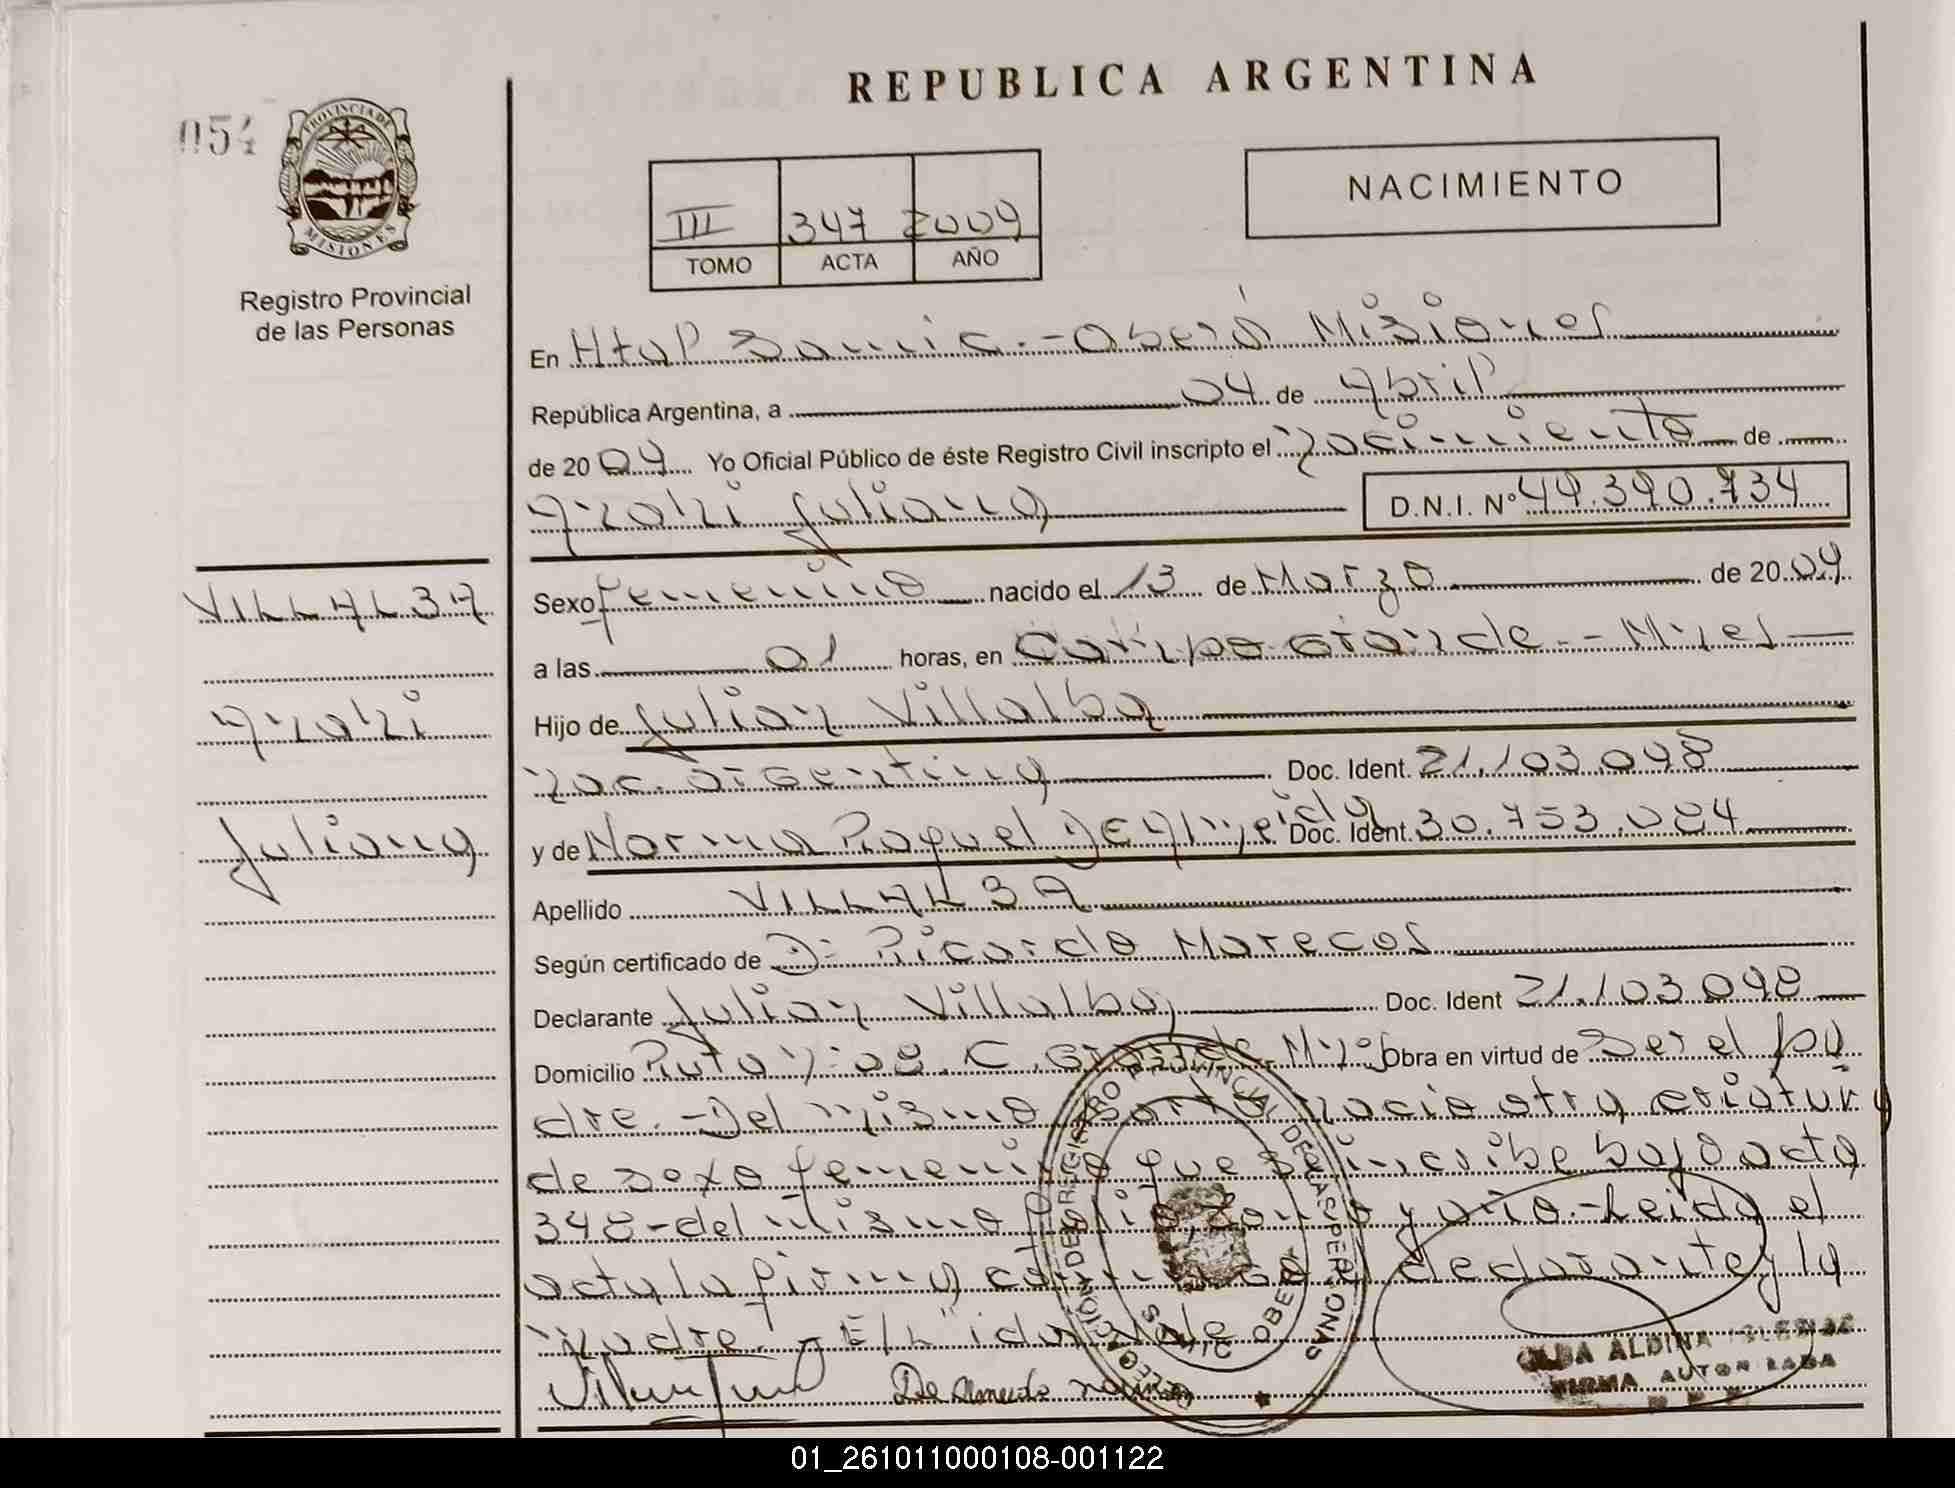 REPUBLICA ARGENTINA
054
PROVINCIA DE
MISIONES
NACIMIENTO
III 347 2009
TOMO ACTA AÑO
Registro Provincial
de las Personas
En Htal Samic.-Oberá Misiones
República Argentina, a 04 de Abril
de 2009 Yo Oficial Público de éste Registro Civil inscripto el nacimiento de
Anahi Juliana D.N.I. Nº 49.390.734
VILLALBA
Anahi
Juliana
Sexo femenino nacido el 13 de Marzo de 2009
a las 01 horas, en Campo Grande.-Mnes
Hijo de Julian Villalba
nac. argentina Doc. Ident. 21.103.098
y de Norma Raquel De Almeida Doc. Ident. 30.753.084
Apellido VILLALBA
Según certificado de Dr Ricardo Marecos
Declarante Julian Villalba Doc. Ident 21.103.098
Domicilio Ruta n: 08. C. Grande. Mnes Obra en virtud de Ser el pa
dre.-Del mismo parto nacio otra criatura
de sexo femenino que se inscribe bajo acta
348-del mismo folio, tomo y año.-Leida el
acta la firma conmigo el declarante y la
madre.- E/L "ida" vale
De Almeida Norma
DELEGACIÓN DEL REGISTRO PROVINCIAL DE LAS PERSONAS
SAMIC OBERA
OLGA ALDINA IGLESIAS
FIRMA AUTORIZADA
01_261011000108-001122